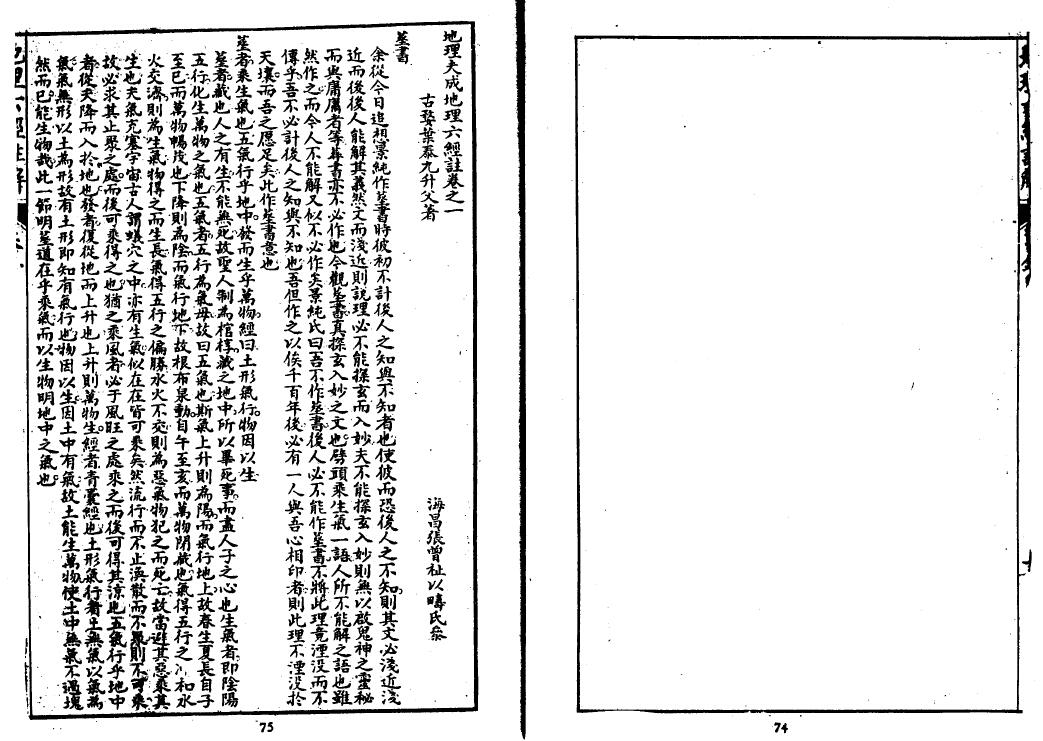 地理大成地理六經註卷之一
古婺葉泰九升父著
海昌張曾祉以疇氏參
葬書
余從今日追想景純作葬書時彼初不計後人之知與不知者也使彼而恐後人之不知則其文必淺近淺
近而後後人能解其義然文而淺近則說理必不能探玄而入妙夫不能探玄入妙則無以啟鬼神之靈秘
而與庸庸者等葬書亦不必作也今觀葬書真探玄入妙之文也劈頭乘生氣一語人所不能解之語也雖
然作之而令人不能解又似不必作矣景純氏曰吾不作葬書後人必不能作葬書不將此理竟湮沒而不
傳乎吾不必計後人之知與不知也吾但作之以俟千百年後必有一人與吾心相印者則此理不湮沒於
天壤而吾之愿足矣此作葬書意也
葬者乘生氣也五氣行乎地中發而生乎萬物經曰土形氣行物因以生
葬者藏也人之有生不能無死故聖人制為棺椁藏之地中所以畢死事而盡人子之心也生氣者即陰陽
五行化生萬物之氣也五氣者五行為氣母故曰五氣也斯氣上升則為陽而氣行地上故春生夏長自子
至巳而萬物暢茂也下降則為陰而氣行地下故根布泉動自午至亥而萬物閉藏也氣得五行之 和水
火交濟則為生氣物得之而生長氣得五行之偏勝水火不交則為惡氣物犯之而死亡故當避其惡乘其
生也夫氣充塞宇宙古人謂蟻穴之中亦有生氣似在在皆可乘矣然流行而不止渙散而不聚則不可乘
故必求其止聚之處而後可乘得之也猶之乘風者必于風旺之處乘之而後可得其涼也五氣行乎地中
者從天降而入於地也發者復從地而上升也上升則萬物生經者青囊經也土形氣行者土無氣以氣為
氣氣無形以土為形故有土形即知有氣行也物因以生因土中有氣故土能生萬物使土中無氣不過塊
然而已能生物哉此一節明葬道在乎乘氣而以生物明地中之氣也
地理六經註解
75
74